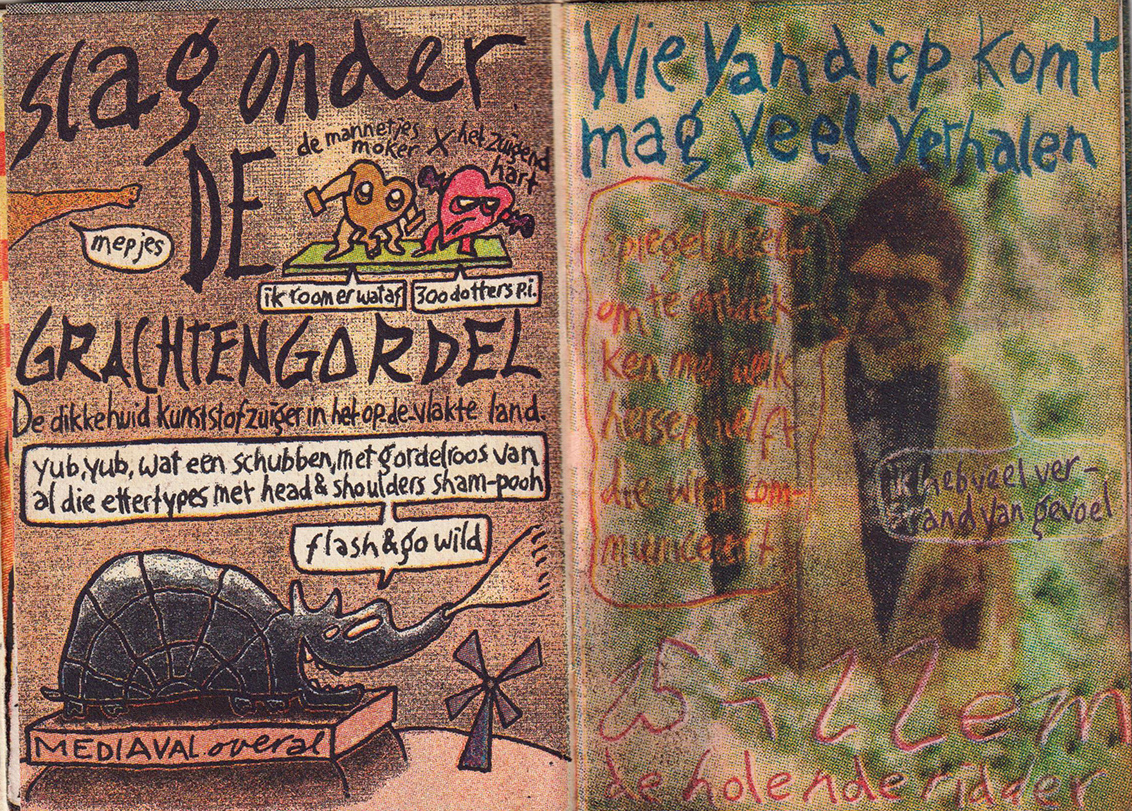 slag onder
DE
GRACHTENGORDEL
de mannetjes
moker
X
het zuigend
hart
mepjes
ik room er wat af
300 dotters p.i.
De dikkehuid kunststofzuiger in het op-de-vlakte land.
yub, yub, wat een schubben, met gordelroos van
al die ettertypes met head & shoulders sham-pooh
flash & go wild
MEDIAVAL overal
Wie Van diep komt
mag veel verhalen
spiegel
om te ontdek-
ken met welk
hersenhelft
die
municeert
ik heb veel ver-
stand van gevoel
Willem
de holende ridder